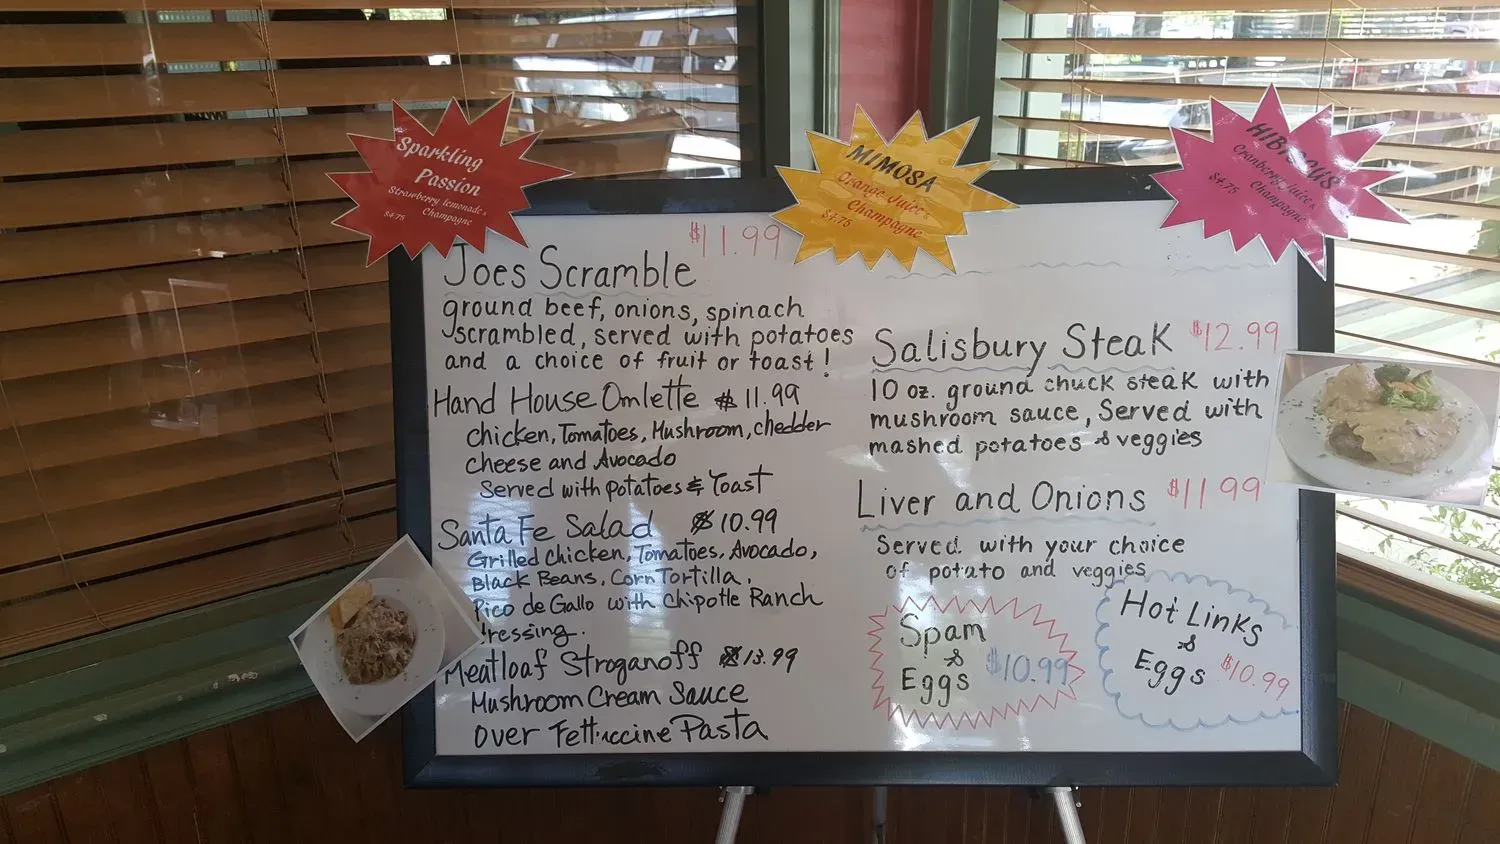 Sparkling
Passion
Strawberry lemonade &
Champagne
$4.75
MIMOSA
Orange Juice &
Champagne
$4.75
HIBISCUS
Cranberry Juice &
Champagne
$4.75
$11.99
Joes Scramble
ground beef, onions, spinach
scrambled, served with potatoes
and a choice of fruit or toast!
Hand House Omlette $11.99
chicken, Tomatoes, Mushroom, chedder
cheese and Avocado
Served with potatoes & Toast
Santa Fe Salad $10.99
Grilled Chicken, Tomatoes, Avocado,
Black Beans, Corn Tortilla,
Pico de Gallo with Chipotle Ranch
Dressing.
Meatloaf Stroganoff $13.99
Mushroom Cream Sauce
over Fettuccine Pasta
Salisbury Steak $12.99
10 oz. ground chuck steak with
mushroom sauce, Served with
mashed potatoes & veggies
Liver and Onions $11.99
Served with your choice
of potato and veggies
Spam
&
Eggs $10.99
Hot Links
&
Eggs $10.99